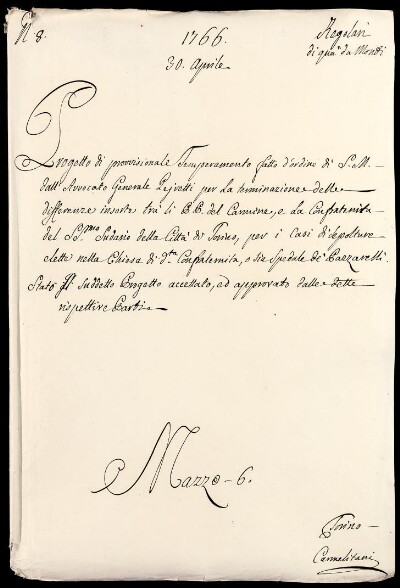 N. 8.
1766.
30. Aprile
Regolari
di quà da Monti
Progetto di provvisionale Temperamento fatto d'ordine di S. M.
dall'Avvocato Generale Pejretti per la terminazione delle
differenze insorte trà li P.P. del Carmine, e la Confraternita
del SS.mo Sudario della Città di Torino, per i Casi di sepolture
elette nella Chiesa di d.ta Confraternita, o sia Spedale de' Pazzarelli.
Stato il suddetto Progetto accettato, ed approvato dalle dette
rispettive Parti
Mazzo - 6.
Torino
Carmelitani